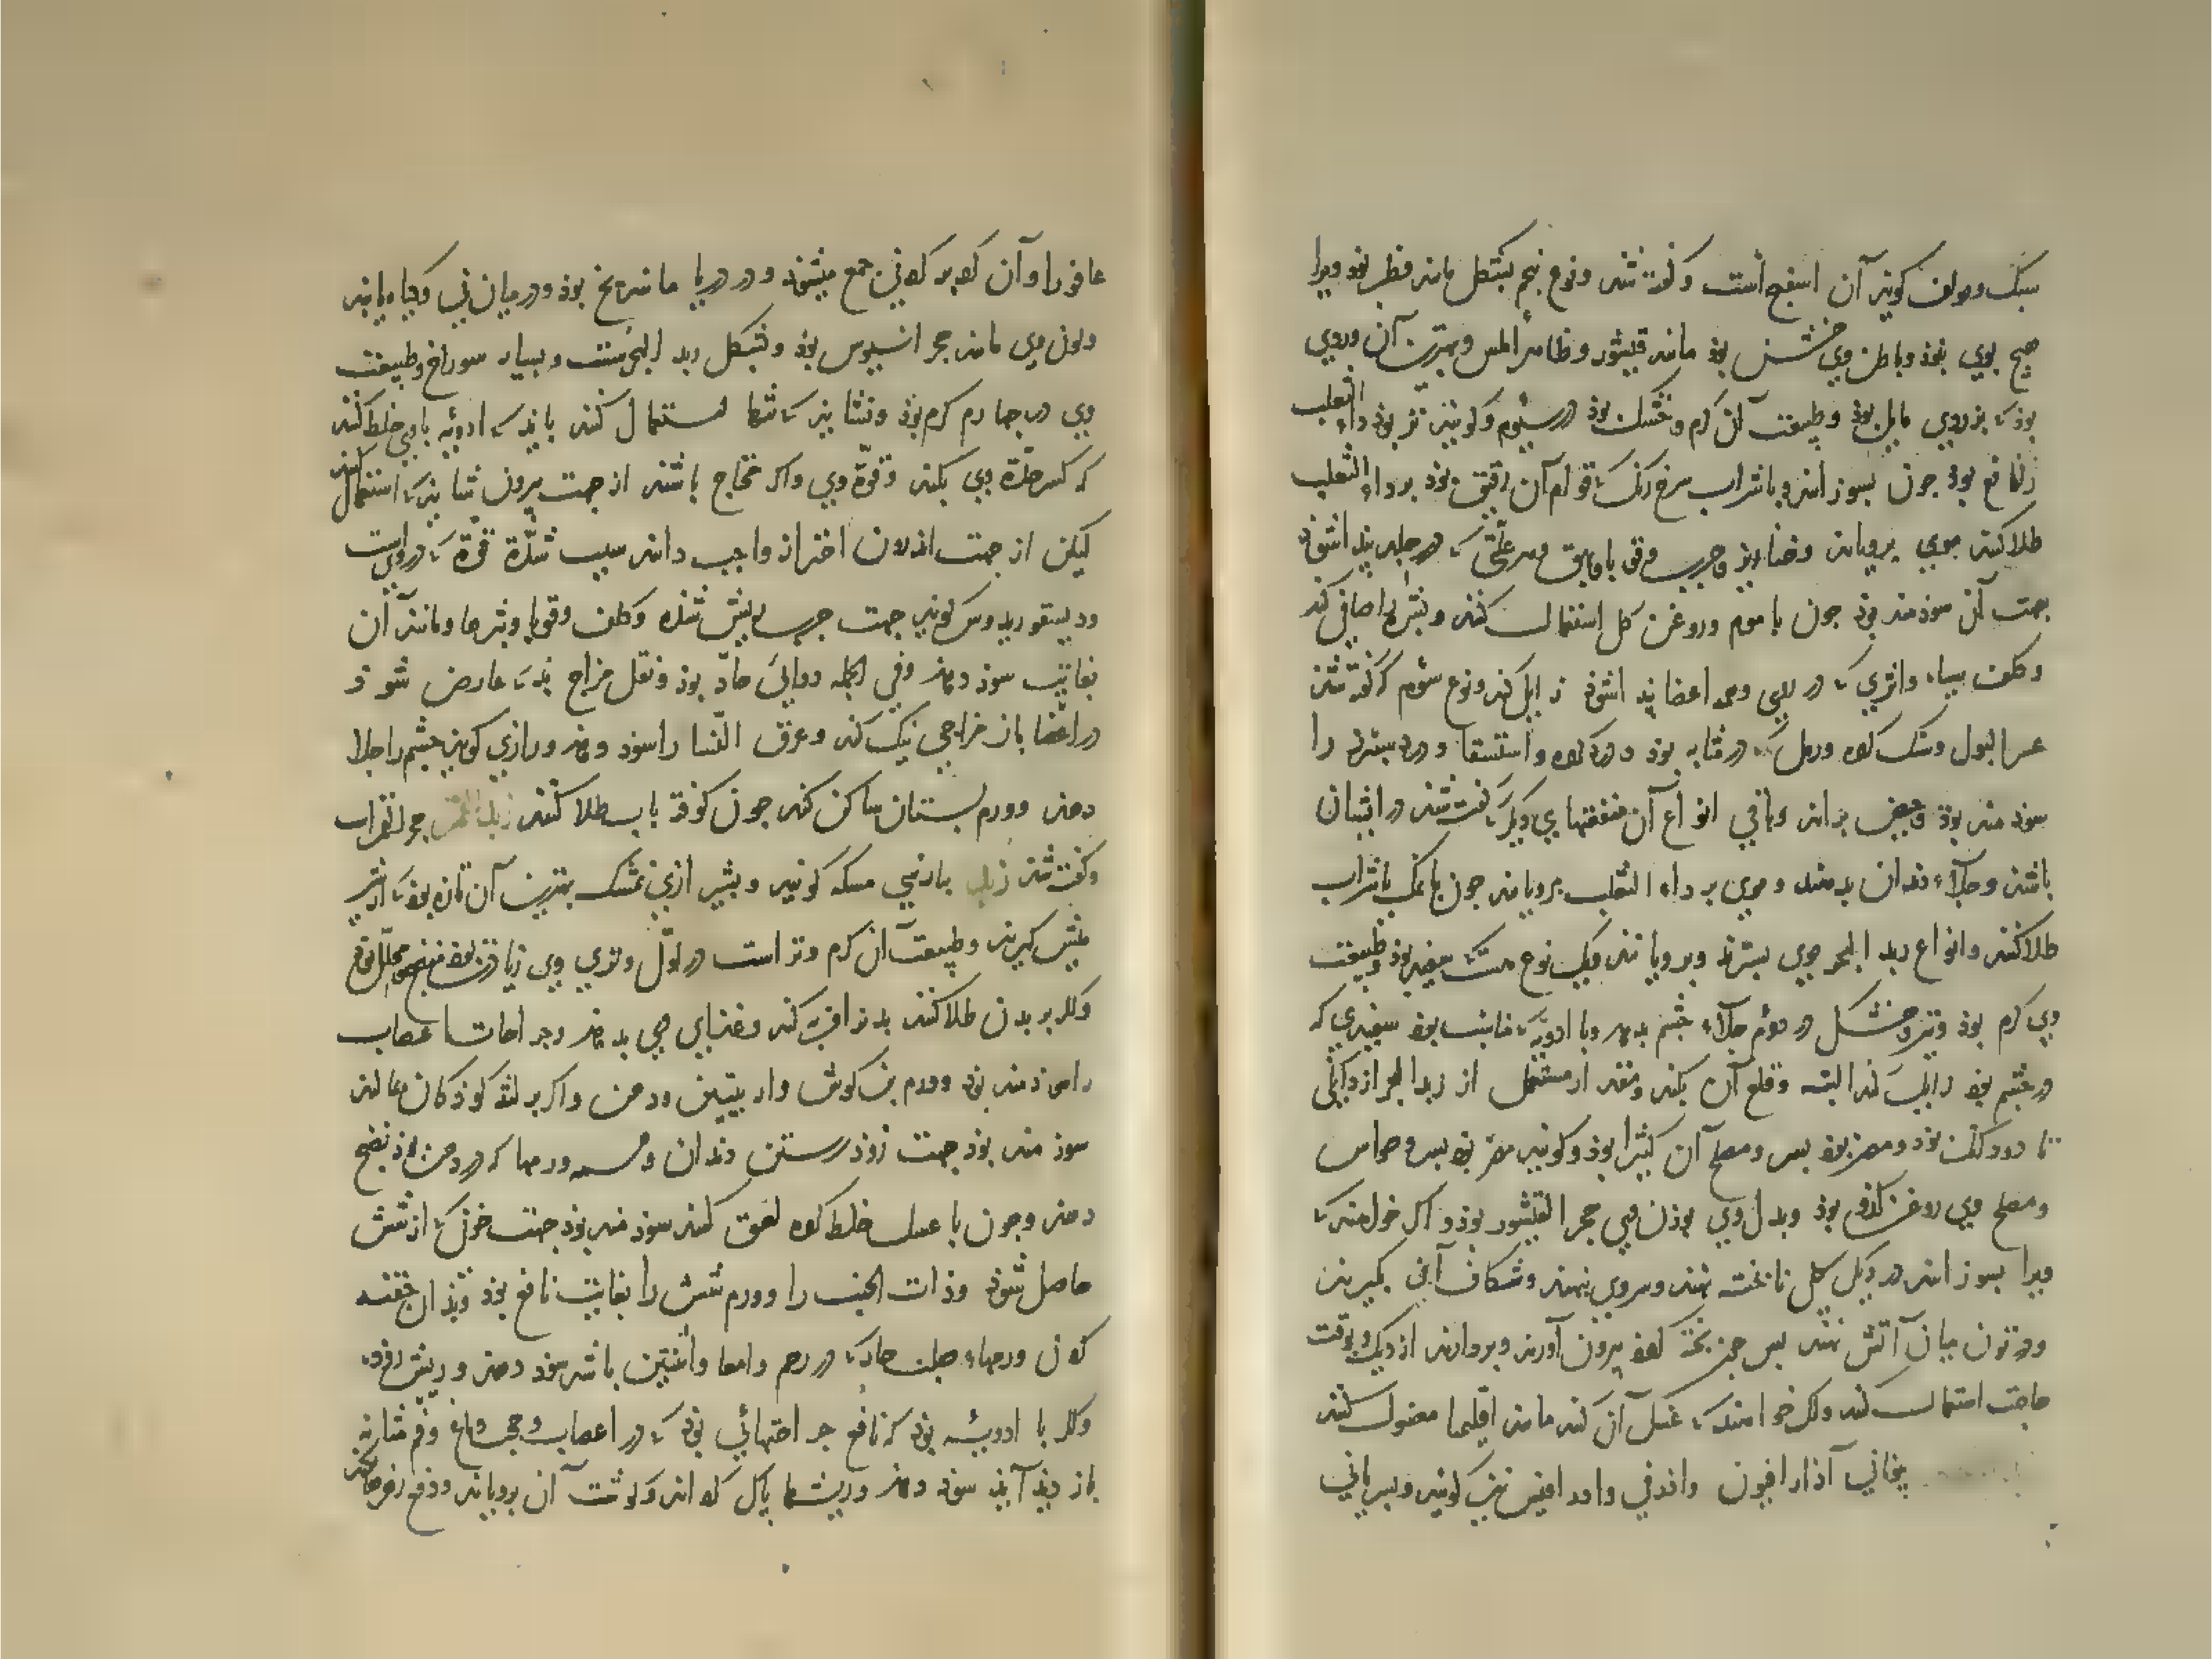 سبک و مولف کویند آن اسفنج است و گفته شد و نوع پنجم بشکل مانند فطر بوذ و ویرا
هیچ بوی نبوذ و باطن وی خشن بوذ مانند قیشور و ظاهر املس و بهترین آن وردی
بوذ که بزردی مایل بوذ و طبیعت آن کرم و خشک بوذ در سیوم و کویند تر بوذ داء الثعلب
را نافع بوذ جون بسوزانند و با شراب سرخ رنک که قوام آن رقیق بوذ بر داء الثعلب
طلا کنند موی برویاند و خنازیر و جرب و قوبا و بهق و هر علتی که در جلد پیدا شوذ
جهت آن سوذمند بوذ جون با موم و روغن کل استعمال کنند و بشره را صافی کند
و کلف سیاه و اثری که در روی و همه اعضا پیدا شوذ زایل کند و نوع سؤم که گفته شد
عسر البول و سنک کرده و رمل که در مثانه بوذ و درد کرده و استسقا و درد سپرز را
سوذمند بوذ و حیض براند و باقی انواع آن منفعتهای دیگر گفته شد در انثیان
باشد و جلاء دندان بدهد و موی بر داء الثعلب برویاند جون با نمک یا شراب
طلا کنند و انواع زبد البحر موی بسترد و برویاند و یک نوع هست که سفید بوذ و طبیعت
وی کرم بوذ و تیز و خشک در دوئم جلاء چشم بدهد و با ادویه که مناسب بوذ سفیدی که
در چشم بوذ زایل کند البته و قلع آن بکند و مقدار مستعمل از زبد البحر از دانکی
تا دو دانک بوذ و مضر بوذ بسر و مصلح آن کثیرا بوذ و کویند مضر بوذ بسر و حواس
و مصلح وی روغن بوذ و بدل وی بوزن وی حجر القیشور بوذ و اکر خواهند که
ویرا بسوزانند در دیکی کل نابخته نهند و سر وی بنهند و شکاف آن بکیرند
و در تون میان آتش نهند بس جون بخته شوذ بیرون آورند و بردارند از دیک و بوقت
حاجت استعمال کنند و اکر خواهند که غسل آن کنند مانند اقلیما مغسول کنند
یونانی آذارافیون و اذرقی و ادرافیس نیز کویند و بسریانی
عافورا و آن که بر که نی جمع میشوذ و در دریا مانند یخ بوذ و در میان نی و کیاه یابند
و لون وی مانند حجر اسیوس بوذ و بشکل زبد البحرست و بسیار سوراخ و طبیعت
وی در جهارم کرم بوذ و نشاید که تنها استعمال کنند باید که ادویه با وی خلط کنند
که کسر حدّة وی بکند و قوّة وی و اکر محتاج باشند از جهت بیرون شاید که استعمال کنند
لیکن از جهت اندرون احتراز واجب دانند سبب شدّة قوّة که در وی است
و دیسقوریدوس کوید جهت جرب ریش شده و کلف و قوبا و بثرها و مانند آن
بغایت سوذ دهد و فی الجمله دوایی حادّ بوذ و نقل مزاج بد که عارض شوذ
در اعضا باز مزاجی نیک کند و عرق النسا را سوذ دهد و رازی کوید چشم را جلا
دهد و ورم بستان ساکن کند جون کوفته با آب طلا کنند زبد القمر حجر القمر است
و گفته شد زبد بپارسی مسکه کویند و بشیرازی نمشک بهترین آن تازه بوذ که از شیر
میش کیرند و طبیعت آن کرم و تر است در اوّل و تری وی زیادت بوذ منضج و محلل بوذ
و اکر بر بدن طلا کنند بدن فربه کند و غذای وی بدهد و جراحات اعصاب
را سوذمند بوذ و ورم بن کوش و اربیتین و دهن و اکر بر لثه کوذکان بمالند
سوذمند بوذ جهت زوذ رستن دندان و همه ورمها که در دهن بوذ نضج
دهد و جون با عسل خلط کرده لعوق کنند سوذمند بوذ جهت خونی که از شش
حاصل شوذ و ذات الجنب را و ورم شش را بغایت نافع بوذ و بذان حقنه
کردن ورمهاء صلب حار که در رحم و امعا و انثیین باشد سوذ دهد و ریش رودها
و اکر با ادویه بوذ که نافع جراحتهائی بوذ که در اعصاب و حجب دماغ و فم مثانه
باز دید آید سوذ دهد و ریشها پاک کرداند و کوشت آن برویاند و دفع